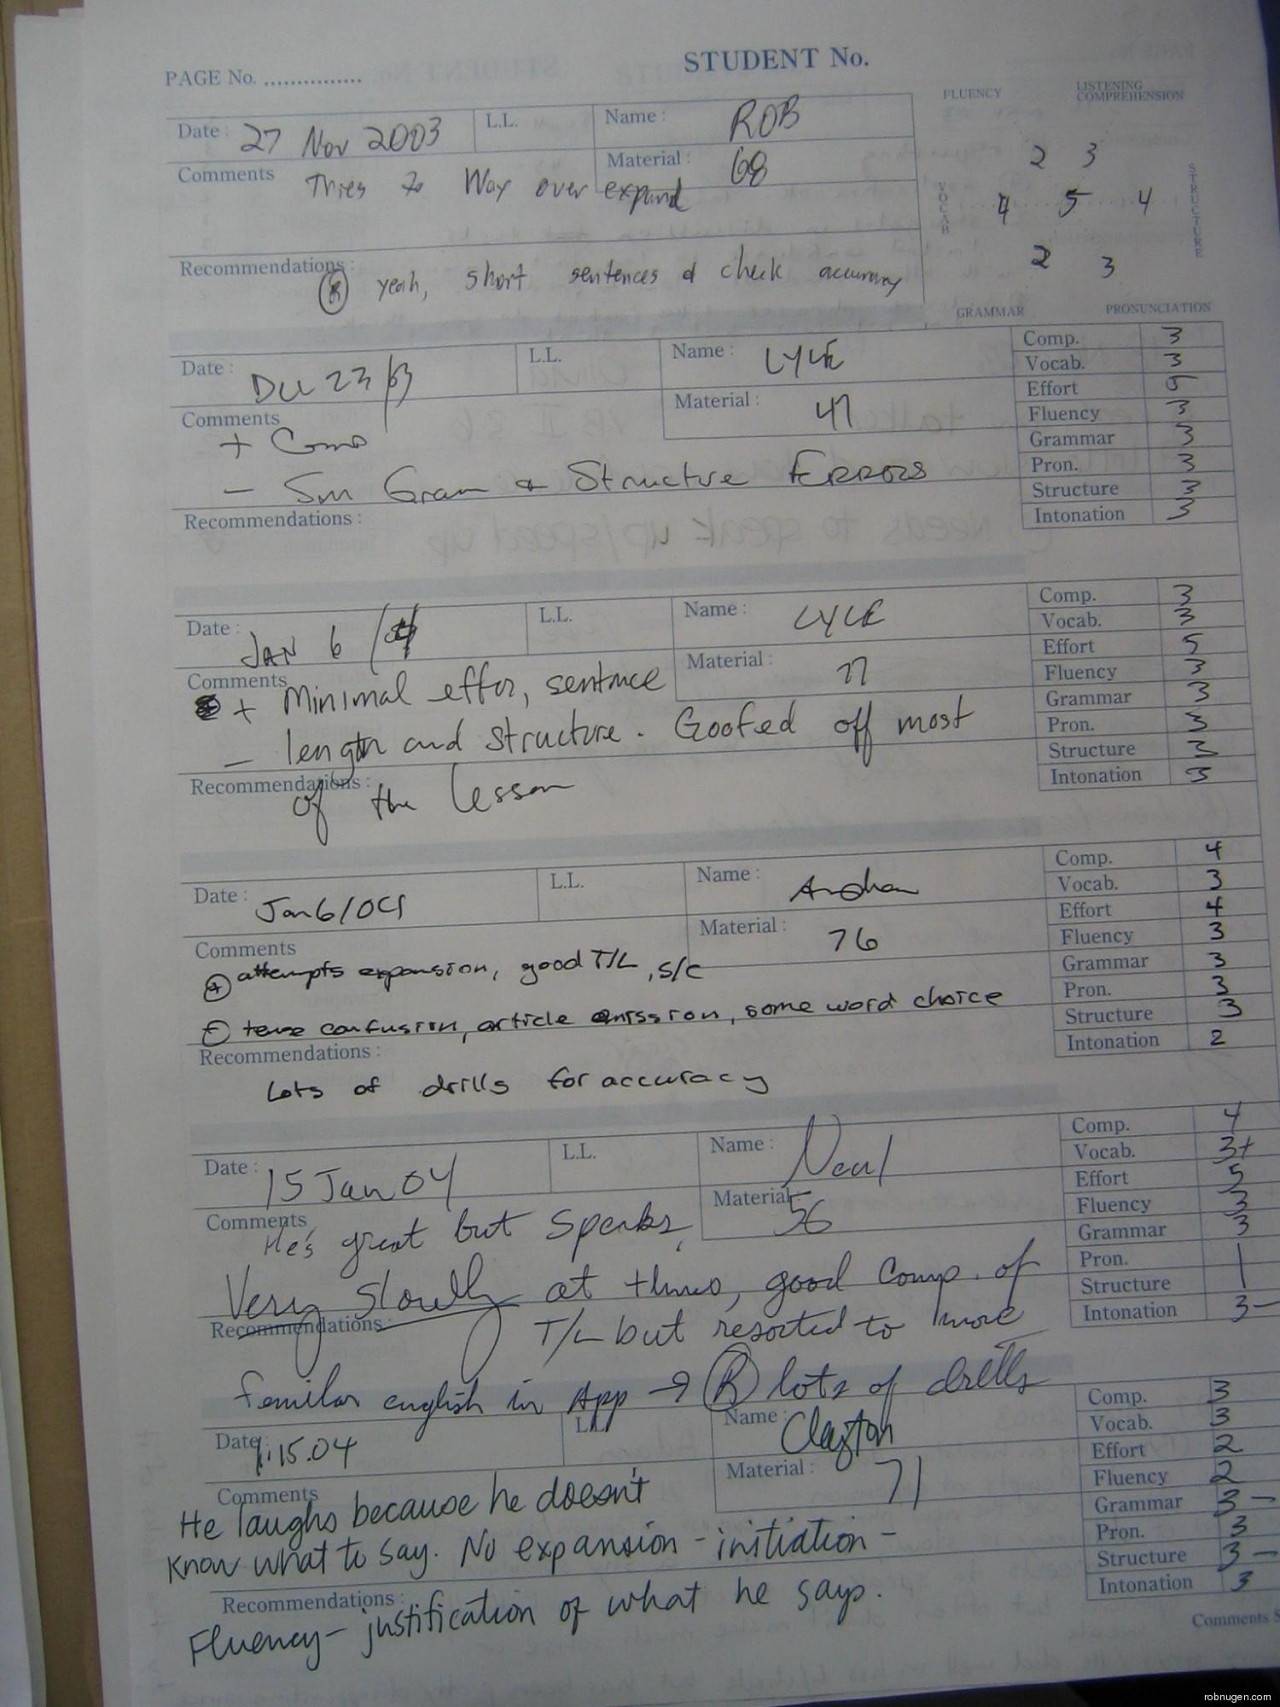 PAGE No. ...............
STUDENT No.
FLUENCY
LISTENING COMPREHENSION
Date : 27 Nov 2003
L.L.
Name : ROB
Material : 68
Comments Tries to Way over expand
2 3
VOCAB 4 5 4 STRUCTURE
2 3
Recommendations :
(R) yeah, short sentences & check accuracy
GRAMMAR
PRONUNCIATION
Date : Dec 23/03
L.L.
Name : LYLE
Material : 47
Comments
+ Comp
- Sm Gram & Structure ERRORS
Recommendations :
Comp. 3
Vocab. 3
Effort 5
Fluency 3
Grammar 3
Pron. 3
Structure 3
Intonation 3
Date : JAN 6 /04
L.L.
Name : LYLE
Material : 77
Comments
+ Minimal effor, sentence
- length and structure. Goofed off most
Recommendations :
of the lesson
Comp. 3
Vocab. 3
Effort 5
Fluency 3
Grammar 3
Pron. 3
Structure 3
Intonation 3
Date : Jan 6/04
L.L.
Name :
Material : 76
Comments
(+) attempts expansion, good T/L, s/c
(-) tense confusion, article omission, some word choice
Recommendations :
Lots of drills for accuracy
Comp. 4
Vocab. 3
Effort 4
Fluency 3
Grammar 3
Pron. 3
Structure 3
Intonation 2
Date : 15 Jan 04
L.L.
Name : Neal
Material : 56
Comments
He's great but speaks
Very slowly at times, good comp. of
Recommendations :
T/L but resorted to more
familar english in App → (R) lots of drills
Comp. 4
Vocab. 3+
Effort 5
Fluency 3
Grammar 3
Pron.
Structure
Intonation 3-
Date : 1.15.04
L.L.
Name : Clayton
Material : 71
Comments
He laughs because he doesn't
know what to say. No expansion - initiation -
Recommendations :
Fluency - justification of what he says.
Comp. 3
Vocab. 3
Effort 2
Fluency 2
Grammar 3-
Pron. 3
Structure 3-
Intonation 3
Comments S
robnugen.com